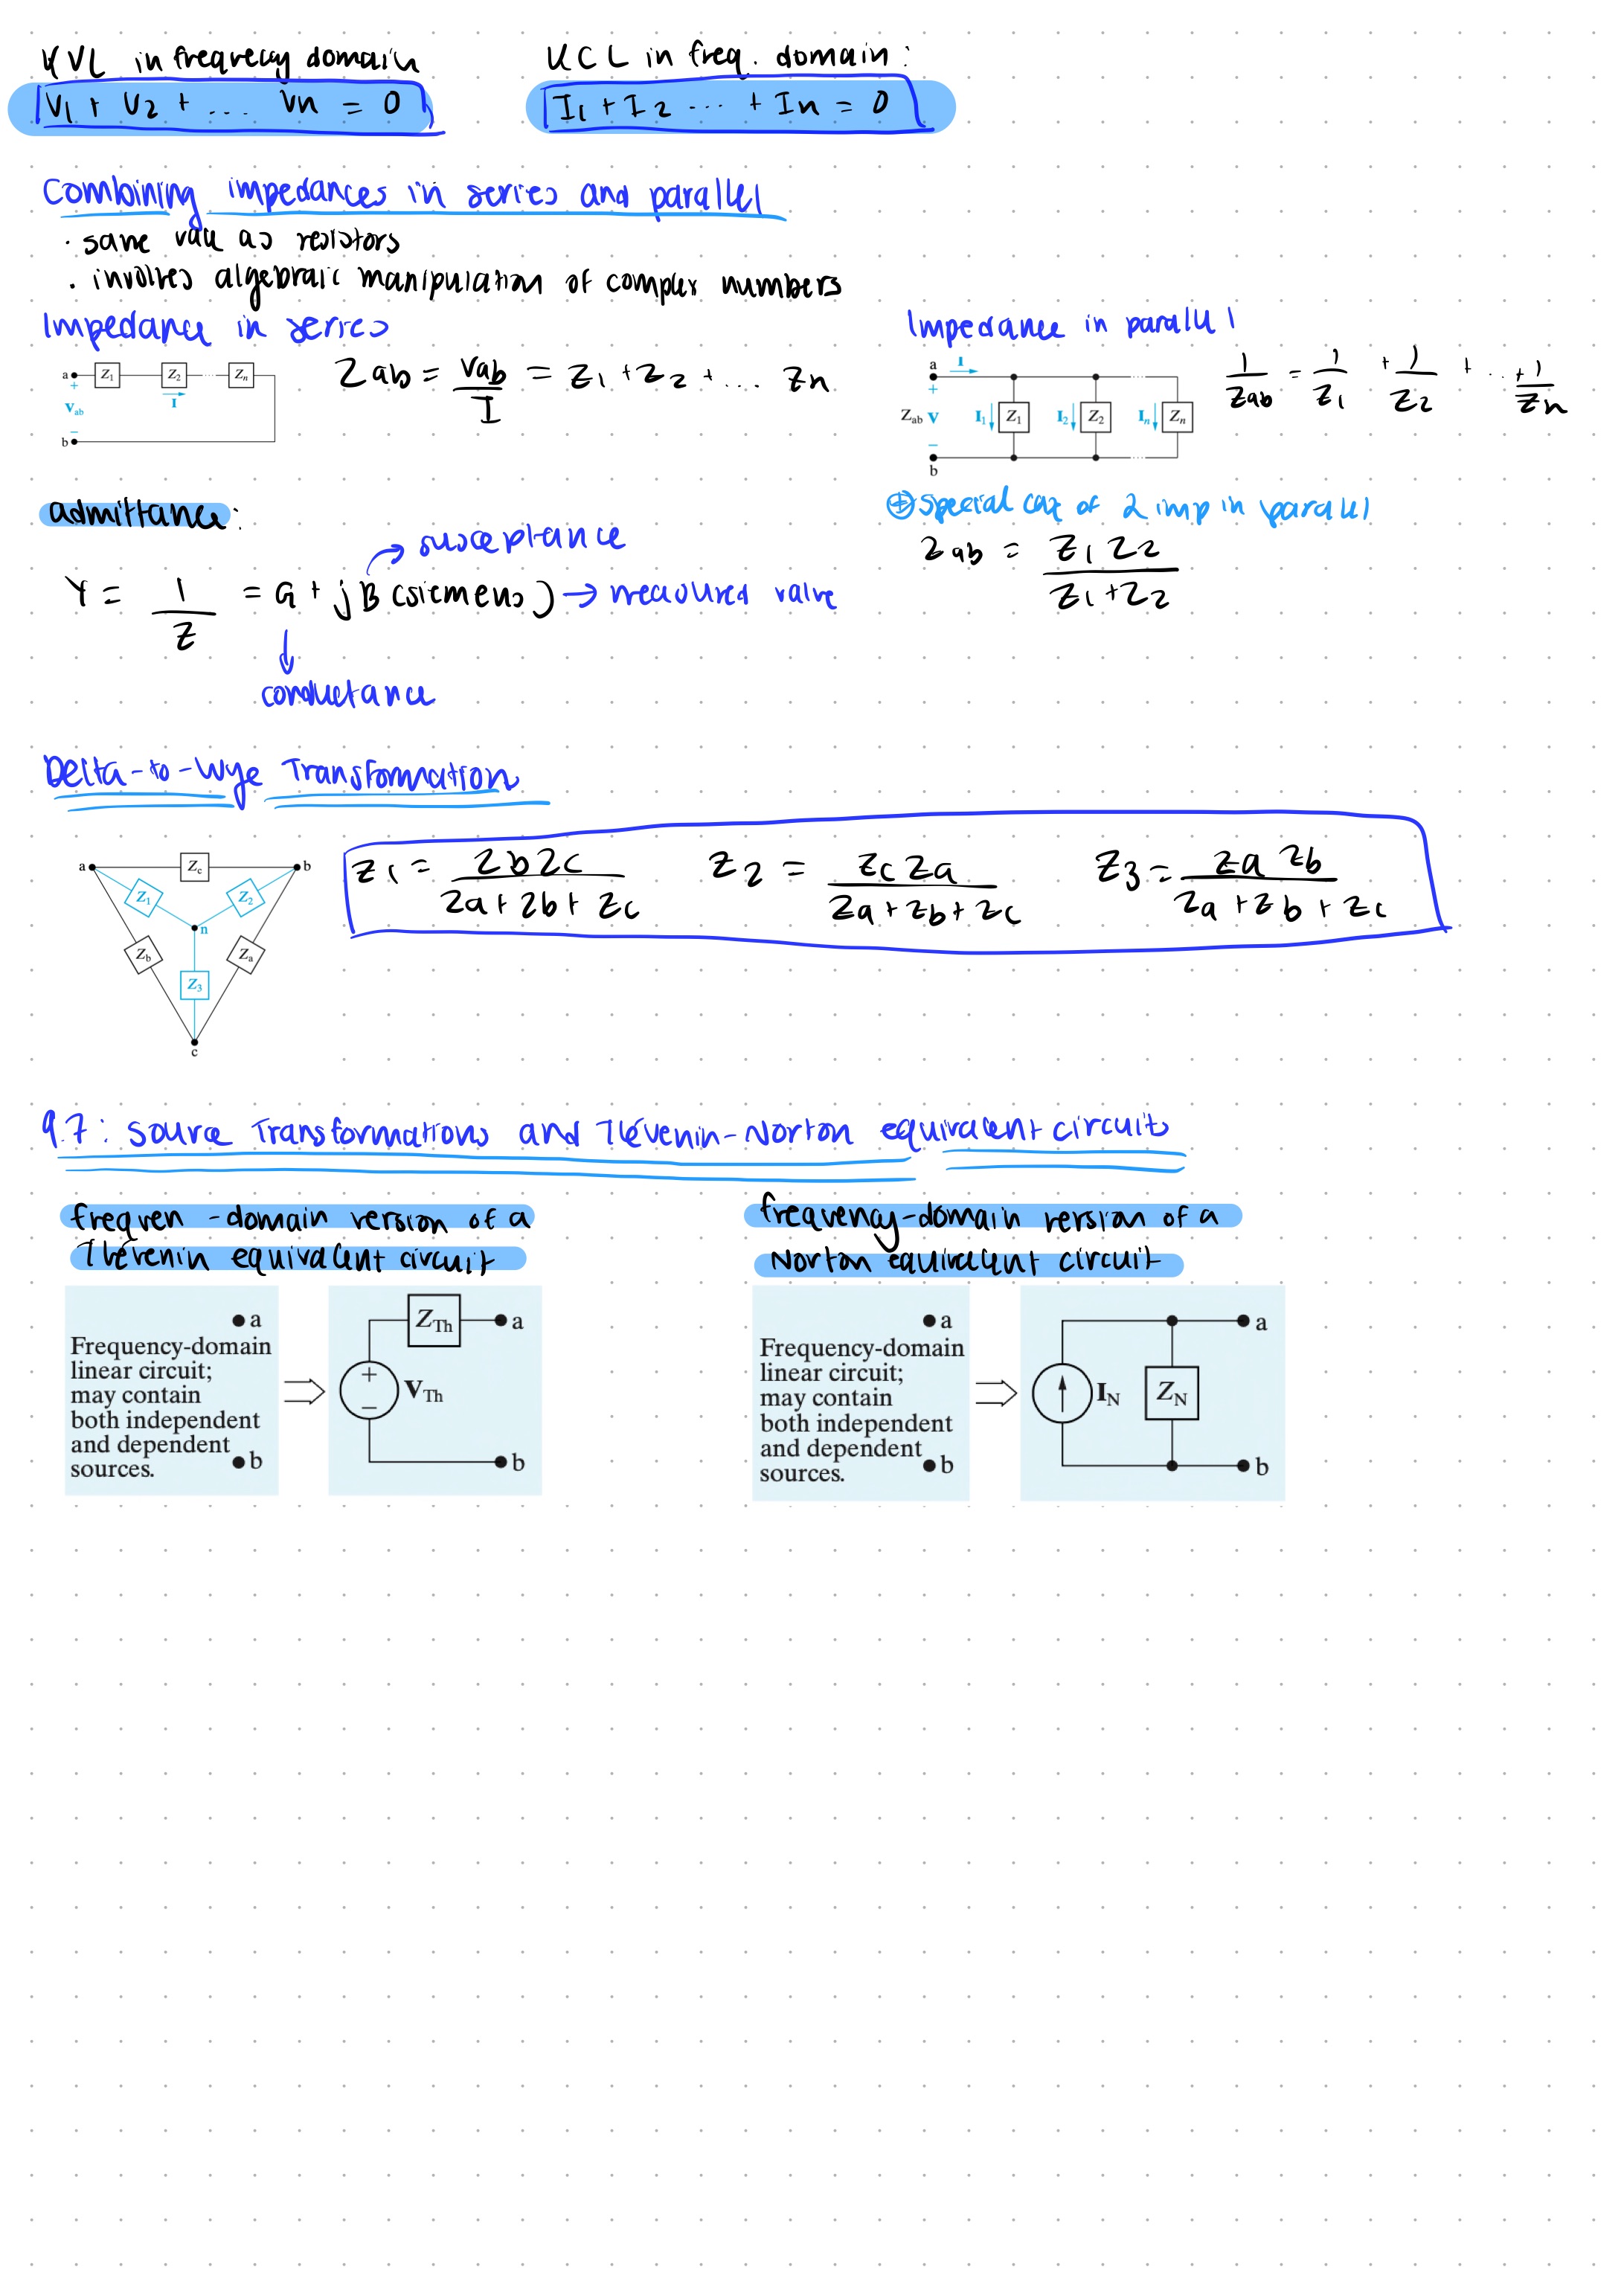 KVL in frequency domain
V1 + V2 + ... Vn = 0
KCL in freq. domain:
I1 + I2 ... + In = 0
Combining impedances in series and parallel
· same as resistors
· involves algebraic manipulation of complex numbers
Impedance in series
a Z1 Z2 ... Zn
+
Vab I
−
b
Zab = Vab / I = Z1 + Z2 + ... Zn
Impedance in parallel
a I
+
Zab V I1 Z1 I2 Z2 In Zn
−
b
1/Zab = 1/Z1 + 1/Z2 + ... + 1/Zn
special case of 2 imp in parallel
Zab = Z1 Z2 / Z1 + Z2
admittance:
susceptance
Y = 1/Z = G + jB (siemens) → measured value
conductance
Delta-to-Wye Transformation
a Zc b
Z1 Z2
n
Zb Za
Z3
c
Z1 = Zb Zc / Za + Zb + Zc
Z2 = Zc Za / Za + Zb + Zc
Z3 = Za Zb / Za + Zb + Zc
9.7: Source Transformations and Thévenin-Norton equivalent circuits
frequen -domain version of a
Thévenin equivalent circuit
a
Frequency-domain
linear circuit;
may contain
both independent
and dependent
sources.
b
ZTh a
+
VTh
−
b
frequency-domain version of a
Norton equivalent circuit
a
Frequency-domain
linear circuit;
may contain
both independent
and dependent
sources.
b
a
IN ZN
b